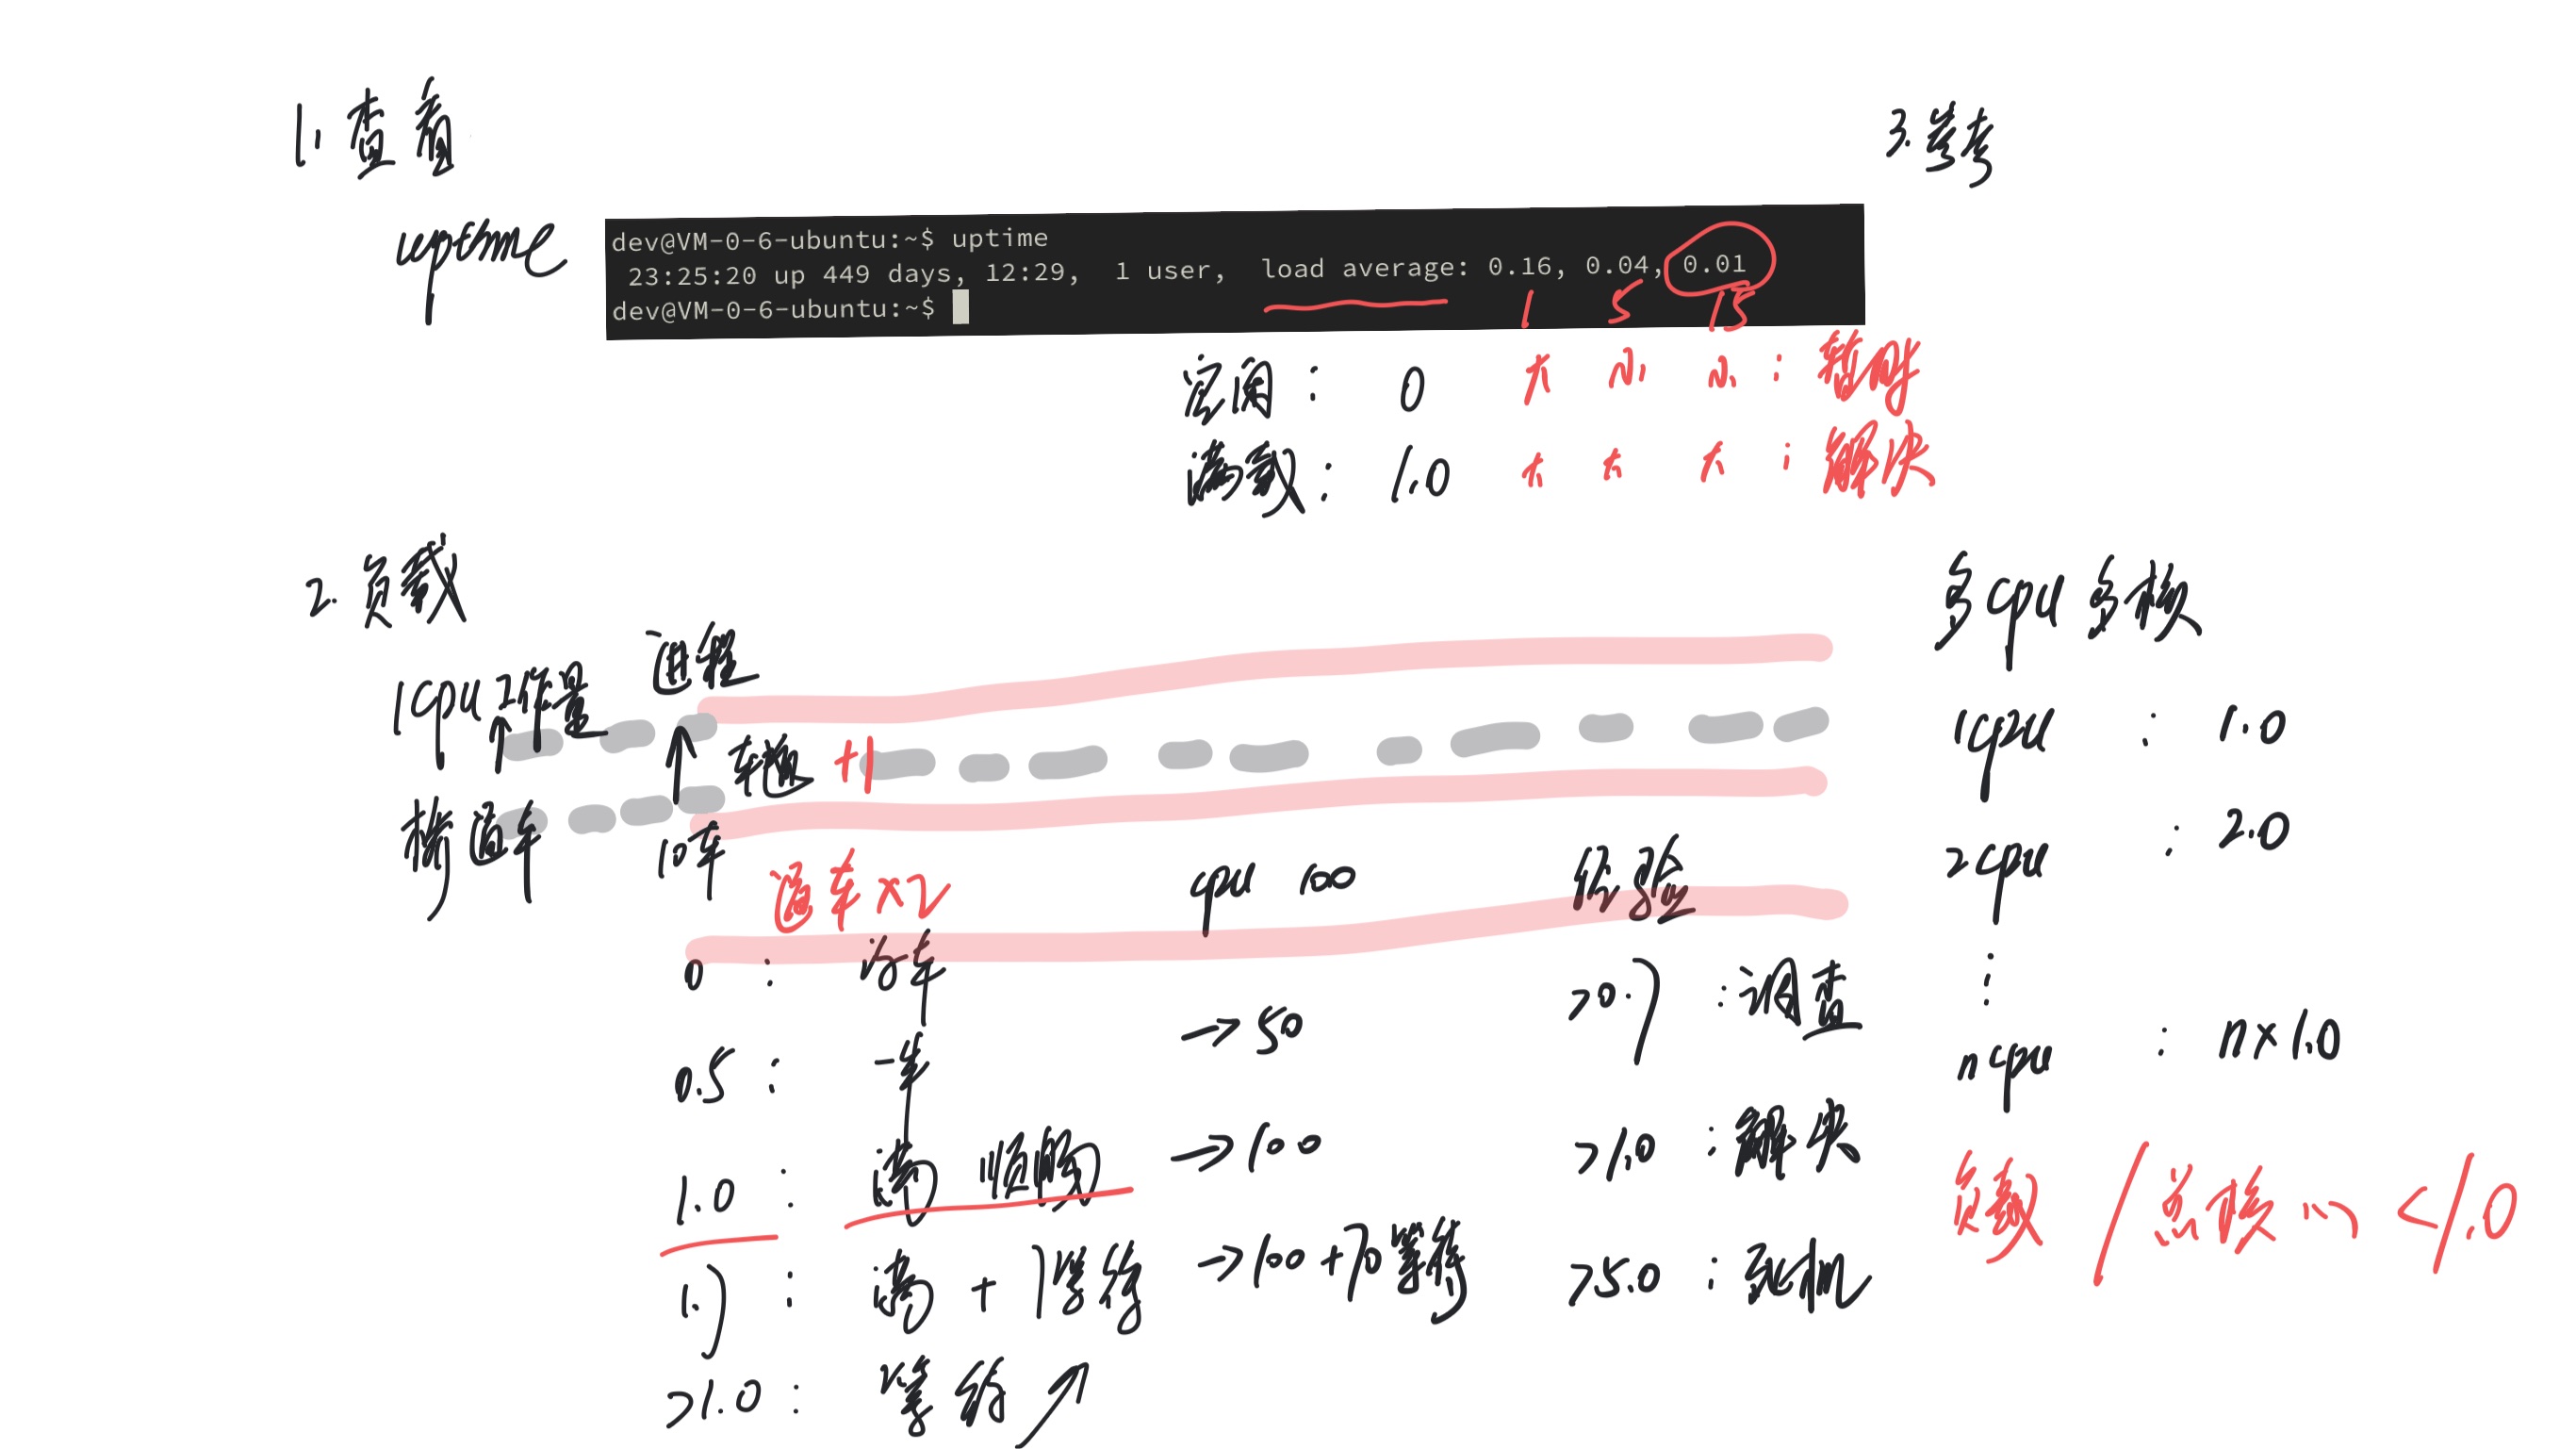 1. 查看
3. 参考
uptime
dev@VM-0-6-ubuntu:~$ uptime
23:25:20 up 449 days, 12:29,  1 user,  load average: 0.16, 0.04, 0.01
dev@VM-0-6-ubuntu:~$
1 5 15
空闲: 0 大 小 小: 暂时
满载: 1.0 大 大 大: 解决
2. 负载
多cpu 多核
1cpu 工作量 进程
桥 通车 10车
车道 +1
通车 ×2
cpu 100
经验
0: 没车
0.5: 一半 →50
1.0: 满 顺畅 →100
1.7: 满 + 7等待 →100+70等待
>1.0: 等待↗
>0.7: 调查
>1.0: 解决
>5.0: 死机
1cpu: 1.0
2cpu: 2.0
⋮
ncpu: n×1.0
负载/总核心<1.0